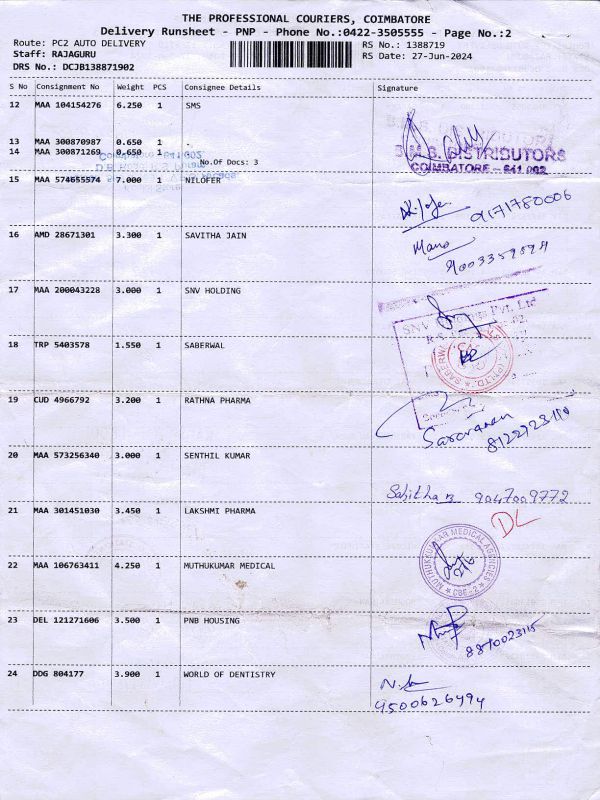 THE PROFESSIONAL COURIERS, COIMBATORE
Delivery Runsheet - PNP - Phone No.:0422-3505555 - Page No.:2
Route: PC2 AUTO DELIVERY RS No.: 1388719
Staff: RAJAGURU RS Date: 27-Jun-2024
DRS No.: DCJB138871902
S No Consignment No Weight PCS Consignee Details Signature
12 MAA 104154276 6.250 1 SMS
13 MAA 300870987 0.650 1 .
14 MAA 300871269 0.650 1
No.Of Docs: 3
DISTRIBUTORS
COIMBATORE - 641 002
15 MAA 574655574 7.000 1 NILOFER
Nilofer 9171780006
16 AMD 28671301 3.300 1 SAVITHA JAIN
Mano
9003359894
17 MAA 200043228 3.000 1 SNV HOLDING
SNV Pvt. Ltd
18 TRP 5403578 1.550 1 SABERWAL
19 CUD 4966792 3.200 1 RATHNA PHARMA
Saravanan
20 MAA 573256340 3.000 1 SENTHIL KUMAR
9047009772
21 MAA 301451030 3.450 1 LAKSHMI PHARMA
DL
22 MAA 106763411 4.250 1 MUTHUKUMAR MEDICAL
MUTHUKKUMAR MEDICAL AGENCIES
CBE-2
23 DEL 121271606 3.500 1 PNB HOUSING
8870023115
24 DDG 804177 3.900 1 WORLD OF DENTISTRY
9500626494